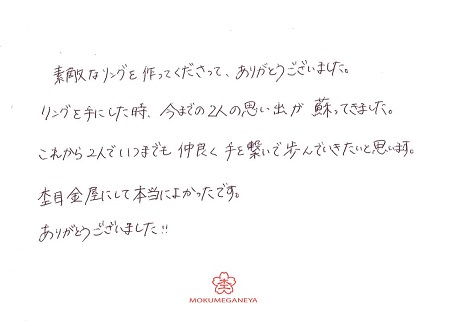 素敵なリングを作ってくださって、ありがとうございました。
リングを手にした時、今までの2人の思い出が蘇ってきました。
これから2人でいつまでも仲良く手を繋いで歩んでいきたいと思います。
杢目金屋にして本当によかったです。
ありがとうございました!!
杢
MOKUMEGANEYA